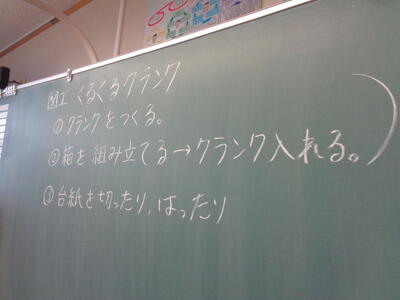 図工 くるくるクランク
①クランクをつくる。
②箱を組み立てる→クランク入れる。
③台紙を切ったり、はったり